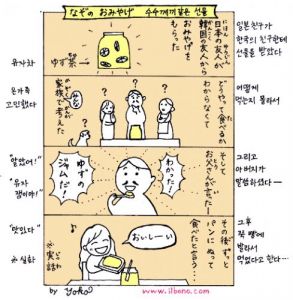 なぞの おみやげ 수수께끼 같은 선물
にほん ゆうじん
日本の友人が
韓国の友人から
おみやげを
もらった
ゆず茶
유자차
일본친구가
한국의 친구한테
선물을 받았다
どうやって食べるか
わからなくて
家族で考えた
온가족
고민했다
어떻게
먹는지 몰라서
そして
お父さんが言った…
わかった!
ゆずの
ジャムだ!
"알았어!"
"유자
잼이야!"
그리고
아버지가
말씀하셨다…
その後ずっと
パンにぬって
食べたと言う…
おいしーい
※実話
"맛있다"
※실화
그후
쭉 빵에
발라서
먹었다고 한다…
by yoko
www.ilbono.com